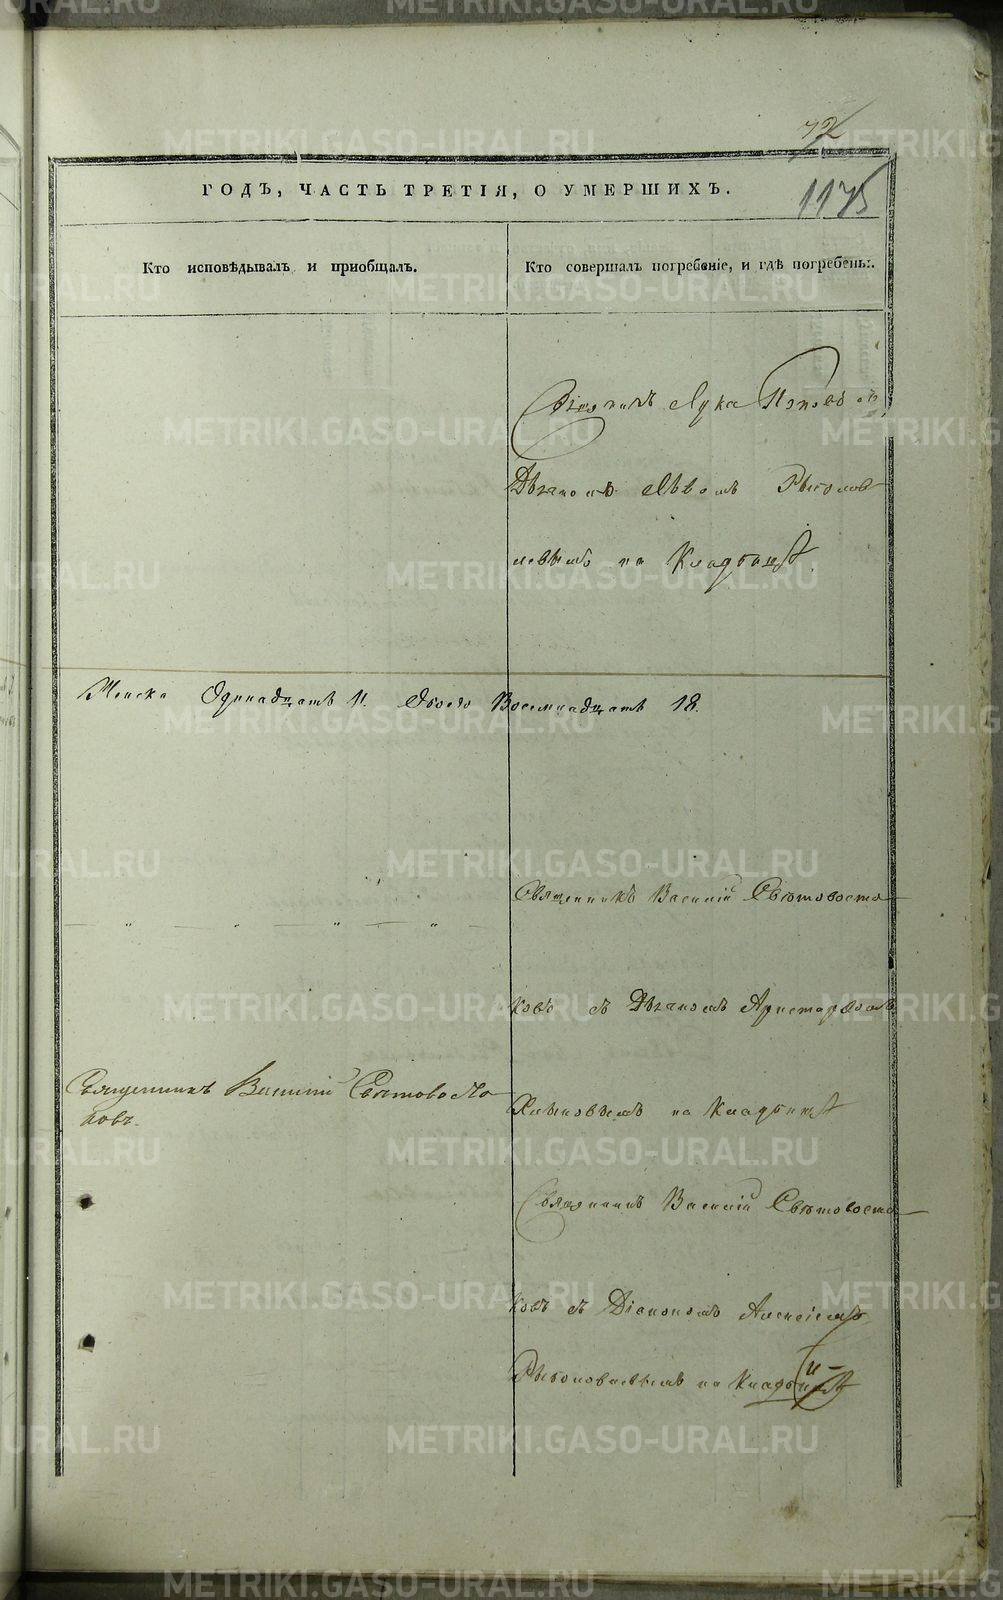 72
1175
ГОДЪ, ЧАСТЬ ТРЕТІЯ, О УМЕРШИХЪ.
Кто исповѣдывалъ и приобщалъ.
Кто совершалъ погребеніе, и гдѣ погребены.
Священникъ Лука Поповъ съ
Дьякономъ Львомъ
на Кладбищѣ.
Женска Одинадцать 11. Обоего Восемнадцать 18.
Священникъ Василій Свѣтовосто
ковъ съ Дьякономъ Аристархомъ
на Кладбищѣ
Священникъ Василій Свѣтовосто
ковъ.
Священникъ Василій Свѣтовосто
ковъ съ Діакономъ Алексіемъ
на Кладбищѣ
METRIKI.GASO-URAL.RU